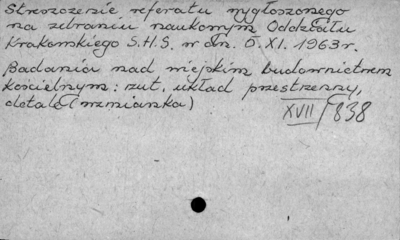 Streszczenie referatu wygłoszonego
na zebraniu naukowym Oddziału
Krakowskiego S.H.S. w dn. 5.XI.1963r.
Badania nad wiejskim budownictwem
kościelnym: rzut, układ przestrzenny,
detale (wzmianka)
XVII/838